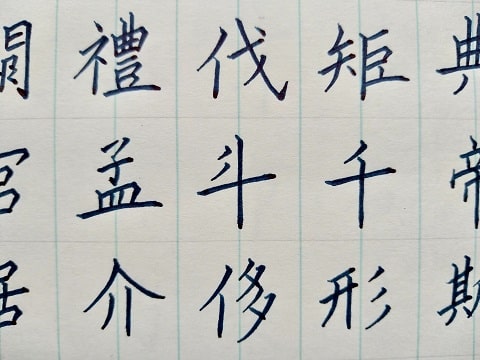 禮伐矩典
宮孟斗千帝
居介侈形斯